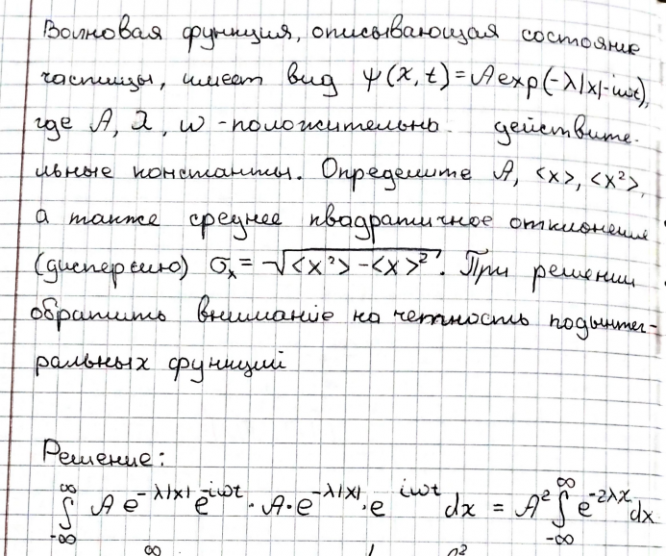 Волновая функция, описывающая состояние
частицы, имеет вид ψ(x,t)=Aexp(-λ|x|-iωt),
где A, λ, ω - положительн. действите-
льные константы. Определите A, <x>, <x²>,
а также среднее квадратичное отклонение
(дисперсию) σₓ = √(<x²> - <x>²). При решении
обратить внимание на четность подынтег-
ральных функций
Решение:
∫_{-∞}^{∞} A e^{-λ|x|} e^{-iωt} · A · e^{-λ|x|} · e^{iωt} dx = A² ∫_{-∞}^{∞} e^{-2λx} dx